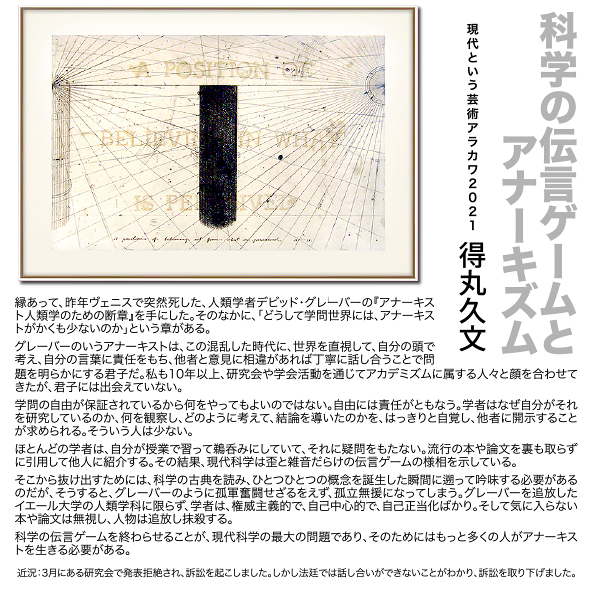 科学の伝言ゲームと
アナーキズム
現代という芸術アラカワ2021
得丸久文
A POSITION OF
BELIEVING IN WHAT
IS PERCEIVED
縁あって、昨年ヴェニスで突然死した、人類学者デビッド・グレーバーの『アナーキス
ト人類学のための断章』を手にした。そのなかに、「どうして学問世界には、アナーキス
トがかくも少ないのか」という章がある。
グレーバーのいうアナーキストは、この混乱した時代に、世界を直視して、自分の頭で
考え、自分の言葉に責任をもち、他者と意見に相違があれば丁寧に話し合うことで問
題を明らかにする君子だ。私も10年以上、研究会や学会活動を通じてアカデミズムに属する人々と顔を合わせて
きたが、君子には出会えていない。
学問の自由が保証されているから何をやってもよいのではない。自由には責任がともなう。学者はなぜ自分がそれ
を研究しているのか、何を観察し、どのように考えて、結論を導いたのかを、はっきりと自覚し、他者に開示すること
が求められる。そういう人は少ない。
ほとんどの学者は、自分が授業で習って鵜呑みにしていて、それに疑問をもたない。流行の本や論文を裏も取らず
に引用して他人に紹介する。その結果、現代科学は歪と雑音だらけの伝言ゲームの様相を示している。
そこから抜け出すためには、科学の古典を読み、ひとつひとつの概念を誕生した瞬間に遡って吟味する必要がある
のだが、そうすると、グレーバーのように孤軍奮闘せざるをえず、孤立無援になってしまう。グレーバーを追放した
イエール大学の人類学科に限らず、学者は、権威主義的で、自己中心的で、自己正当化ばかり。そして気に入らない
本や論文は無視し、人物は追放し抹殺する。
科学の伝言ゲームを終わらせることが、現代科学の最大の問題であり、そのためにはもっと多くの人がアナーキス
トを生きる必要がある。
近況：3月にある研究会で発表拒絶され、訴訟を起こしました。しかし法廷では話し合いができないことがわかり、訴訟を取り下げました。